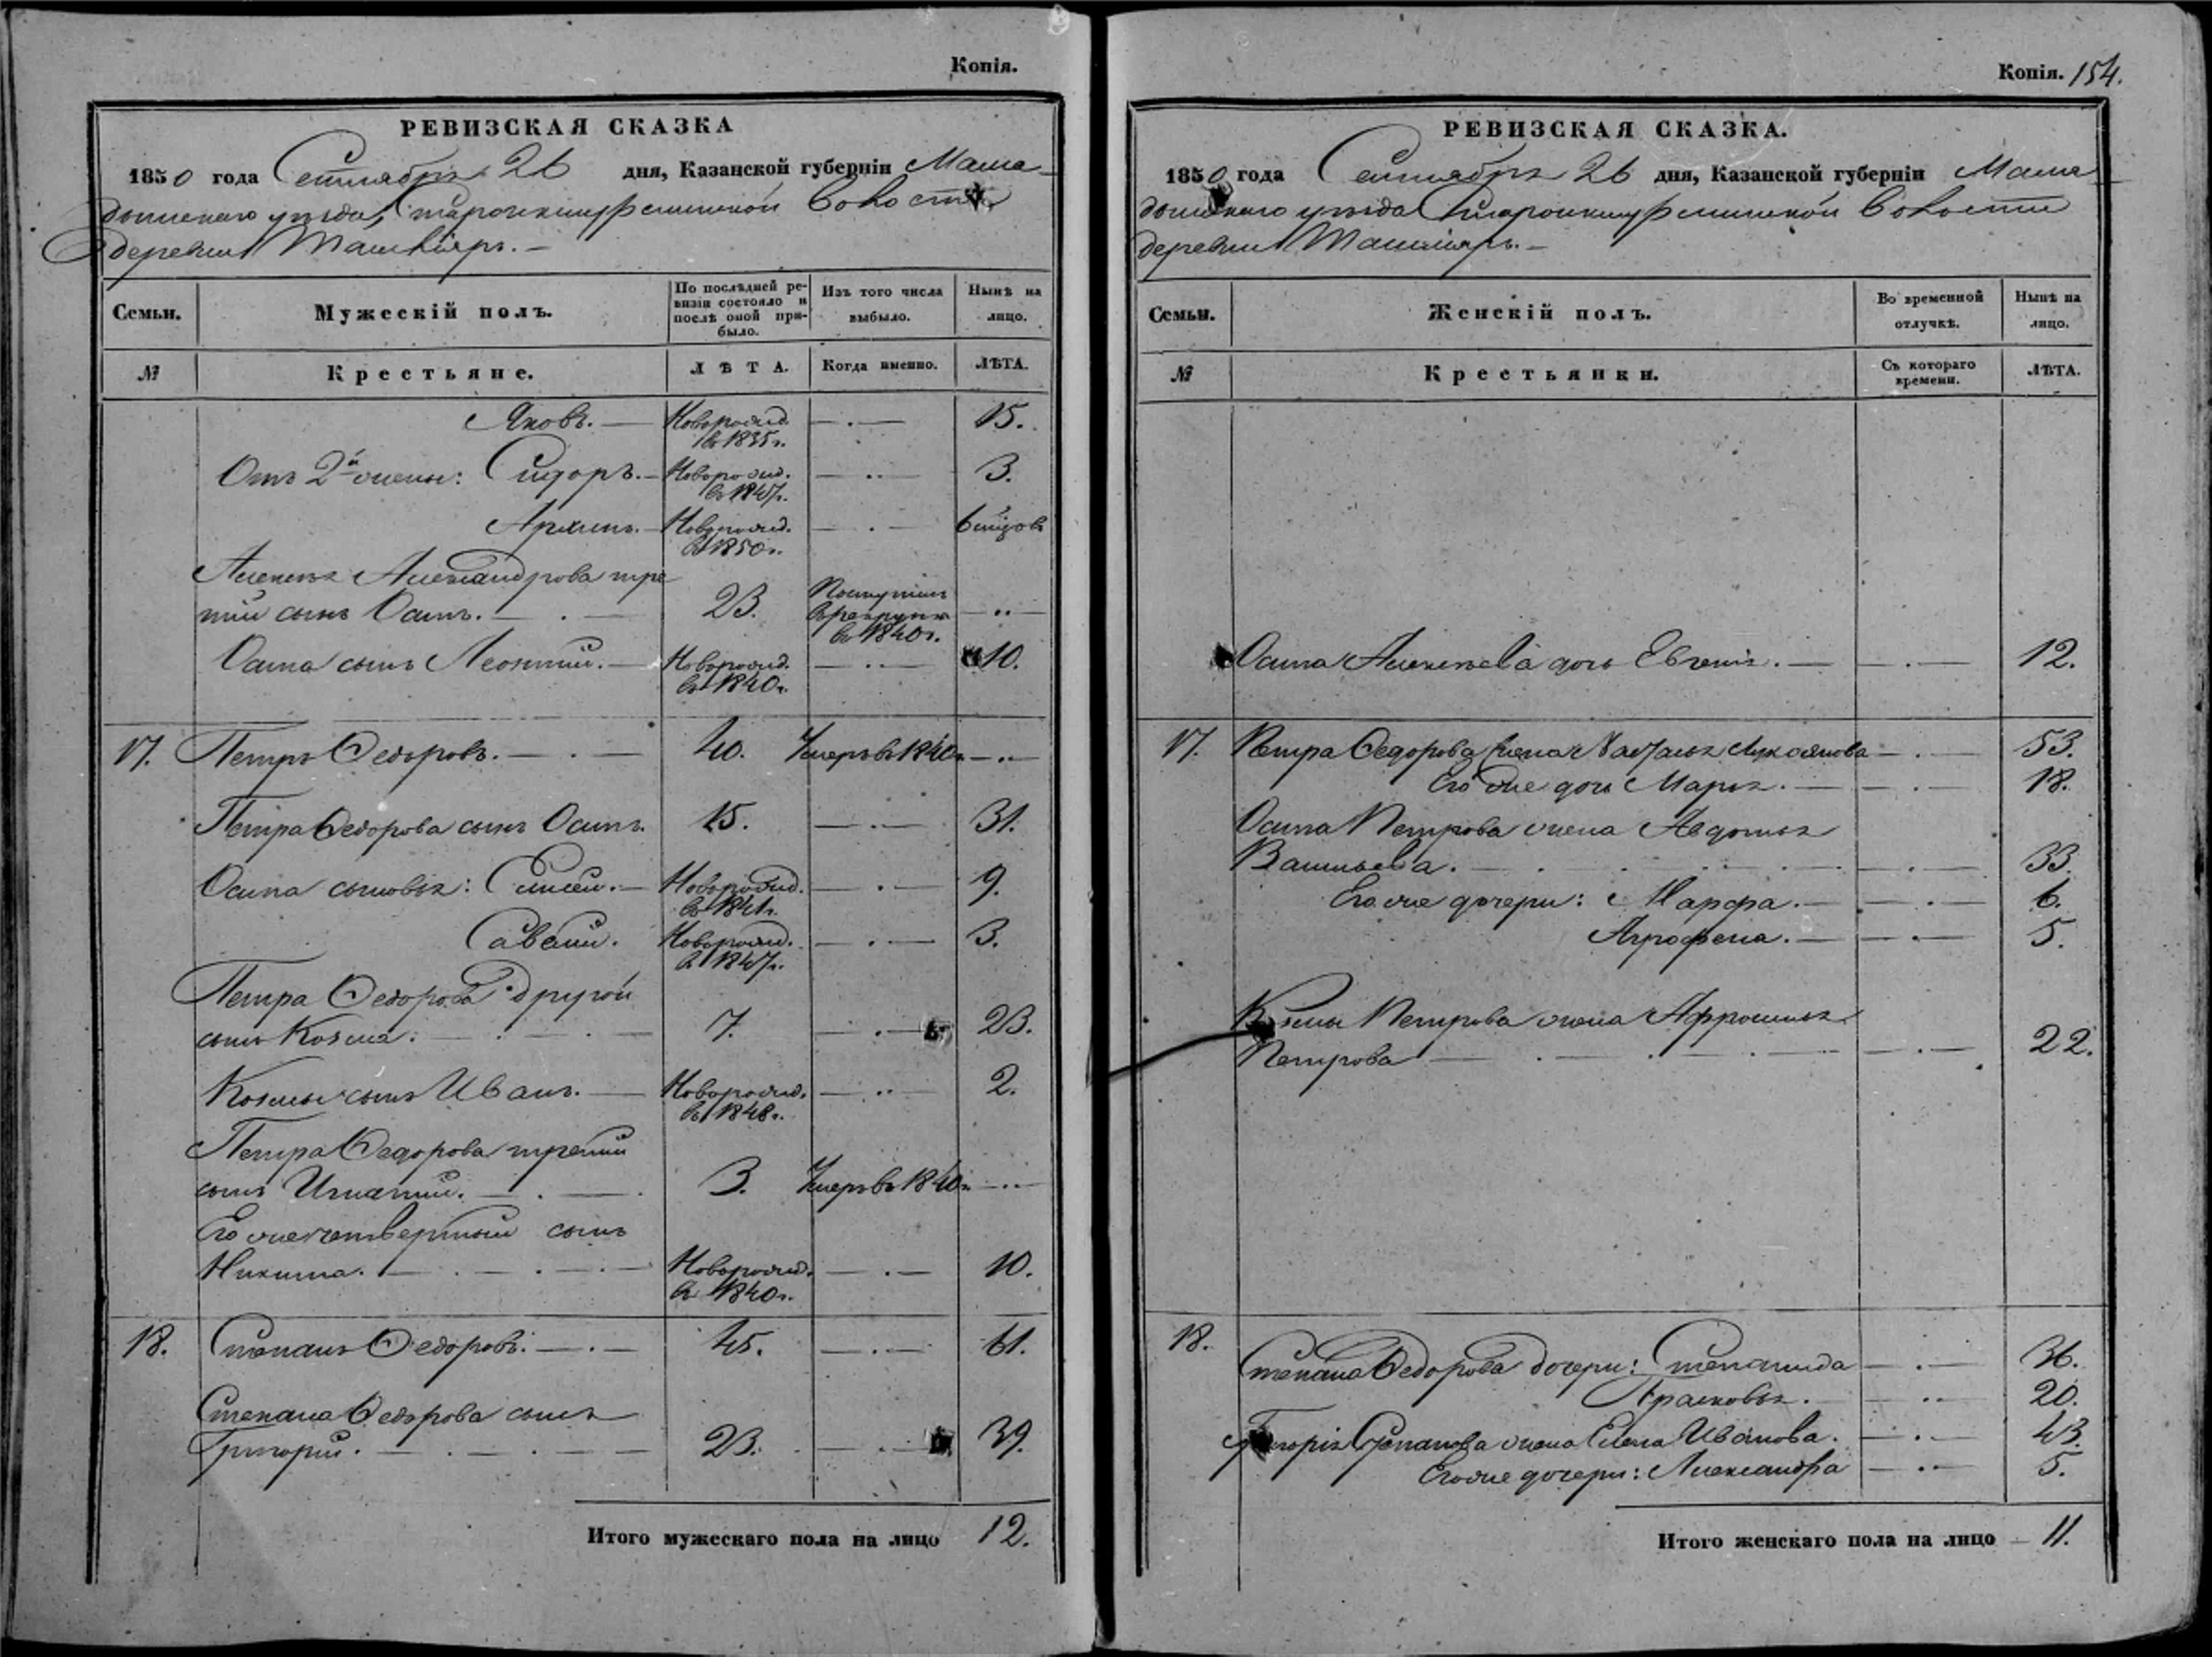 Копія.
РЕВИЗСКАЯ СКАЗКА
1850 года Сентября 26 дня, Казанской губерніи Мама-
дышскаго уѣзда, Старокишинской волости
деревни
Семьи. Мужескій полъ. По послѣдней ре-визіи состояло и послѣ оной при-было. Изъ того числа выбыло. Нынѣ на лицо.
№ Крестьяне. ЛѢТА. Когда именно. ЛѢТА.
Яковъ. — Новорожд. въ 1835г. — · — 15.
Отъ 2й жены: Сидоръ. — Новорожд. въ 1847г. — ·· — 3.
Архипъ. — Новорожд. въ 1850г. — · — 6 мѣсов
Алексѣя Александрова тре-
тій сынъ Осипъ. — · — 23. Поступилъ в рекруты въ 1840г. — ·· —
Осипа сынъ Леонтій. — Новорожд. въ 1840г. — ·· — 10.
17. Петръ Ѳедоровъ. — · — 40. Умеръ въ 1840г. — ·· —
Петра Ѳедорова сынъ Осипъ. 15. — · — 31.
Осипа сыновья: Елисей. — Новорожд. въ 1841г. — · — 9.
Савелій. Новорожд. въ 1847г. — · — 3.
Петра Ѳедорова другой
сынъ Козма. — · — 7. — · — 23.
Козмы сынъ Иванъ. — Новорожд. въ 1848г. — ·· — 2.
Петра Ѳедорова третій
сынъ Игнатій. — · — 3. Умеръ въ 1840г. — ·· —
Его же четвертый сынъ
Никита. — · — · — Новорожд. въ 1840г. — · — 10.
18. Степанъ Ѳедоровъ. — · — 45. — · — 61.
Степана Ѳедорова сынъ
Григорій. — · — · — 23. — · — 39.
Итого мужескаго пола на лицо 12.
Копія. 154.
РЕВИЗСКАЯ СКАЗКА.
1850 года Сентября 26 дня, Казанской губерніи Мама-
дышскаго уѣзда Старокишинской волости
деревни
Семьи. Женскій полъ. Во временной отлучкѣ. Нынѣ на лицо.
№ Крестьянки. Съ котораго времени. ЛѢТА.
Осипа Алексѣева дочь Евгенія. — — · — 12.
17. Петра Ѳедорова жена Наталья Лукоянова — · — 53.
Его же дочь Марья. — — · — 18.
Осипа Петрова жена Авдотья
Васильева. — · — · — 33.
Его же дочери: Марфа. — — · — 6.
Агрофена. — — · — 5.
Козмы Петрова жена Афросинья
Петрова — · — · — · — 22.
18. Степана Ѳедорова дочери: Степанида — · — 36.
Прасковья. — ·· — 20.
Григорія Степанова жена Елена Иванова. — · — 43.
Его же дочери: Александра — ·· — 5.
Итого женскаго пола на лицо — 11.